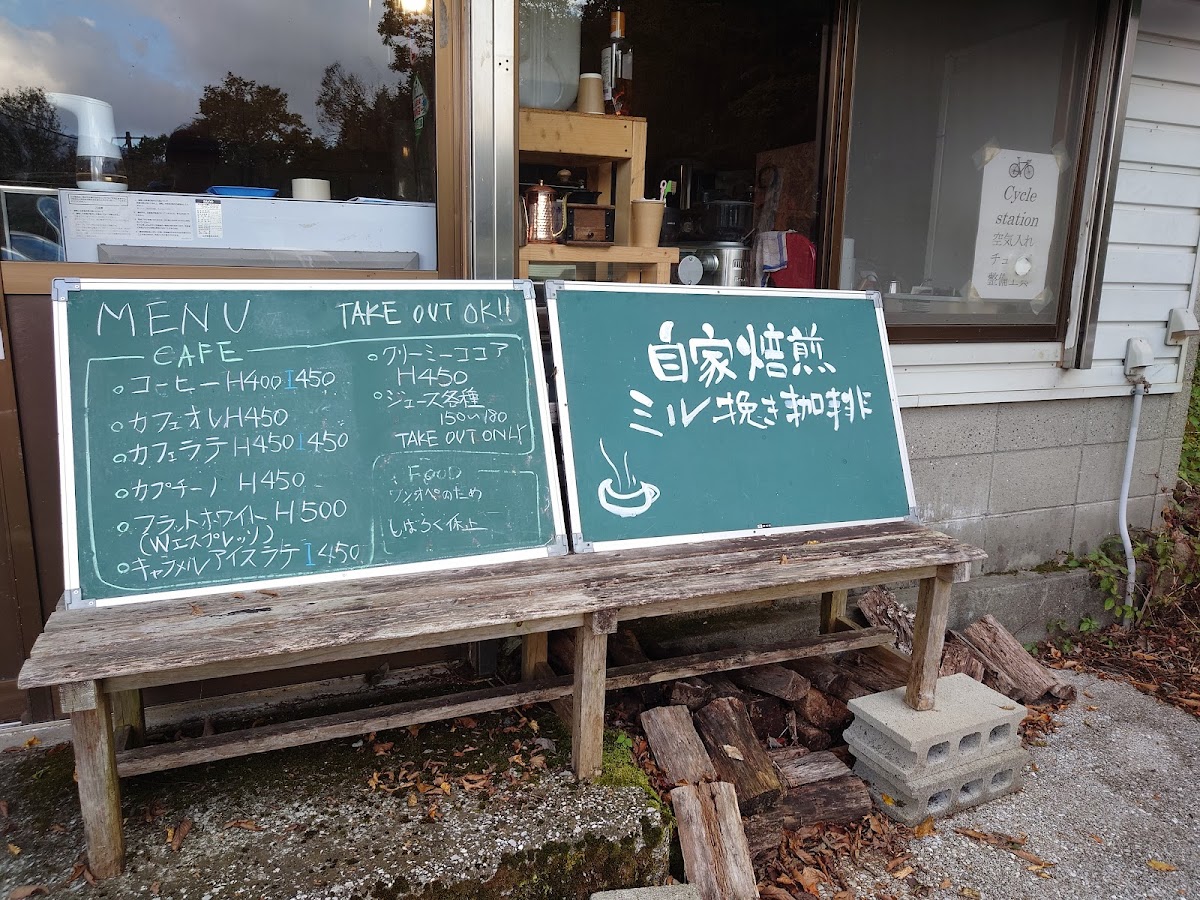 MENU TAKE OUT OK!!
CAFE
コーヒー H400 I450
カフェオレ H450
カフェラテ H450 I450
カプチーノ H450
フラットホワイト H500
(Wエスプレッソ)
キャラメルアイスラテ I450
クリーミーココア
H450
ジュース各種
150〜180
TAKE OUT ONLY
FOOD
ワンオペのため
しばらく休止
自家焙煎
ミル挽き珈琲
Cycle
station
空気入れ
チュ
整備工具